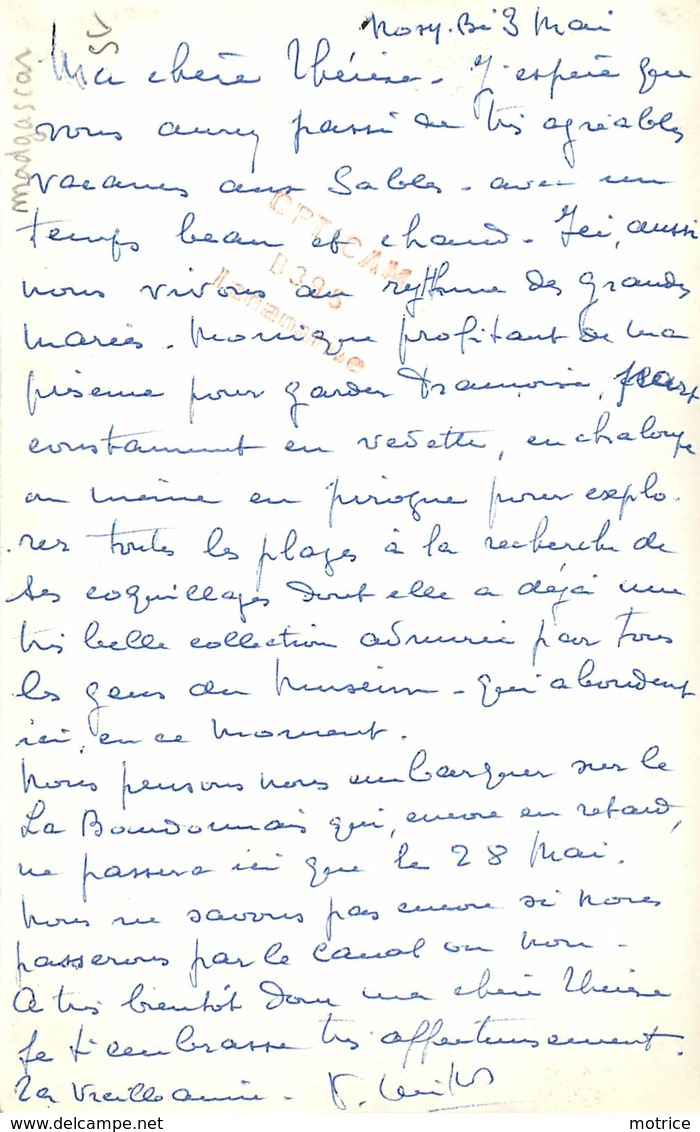 Nosy-Bé 3 Mai
Madgascar
Ma chère Thérèse - J'espère que
vous aurez passé de très agréables
vacances aux Sables - avec un
temps beau et chaud - Ici, aussi
nous vivons au rythme des grandes
marées - Monique profitant de ma
présence pour garder Françoise, part
constamment en vedette, en chaloupe
ou même en pirogue pour explo-
rer toutes les plages à la recherche de
ses coquillages dont elle a déjà une
très belle collection admirée par tous
les gens du Museum - qui abondent
ici, en ce moment.
Nous pensons nous embarquer sur le
La Bourdonnais qui, encore en retard,
ne passera ici que le 28 Mai.
Nous ne savons pas encore si nous
passerons par le canal ou non -
A très bientôt donc ma chère Thérèse
Je t'embrasse très affectueusement.
Ta vieille amie -
OPTICAM
B.396
© motrice
www.delcampe.net